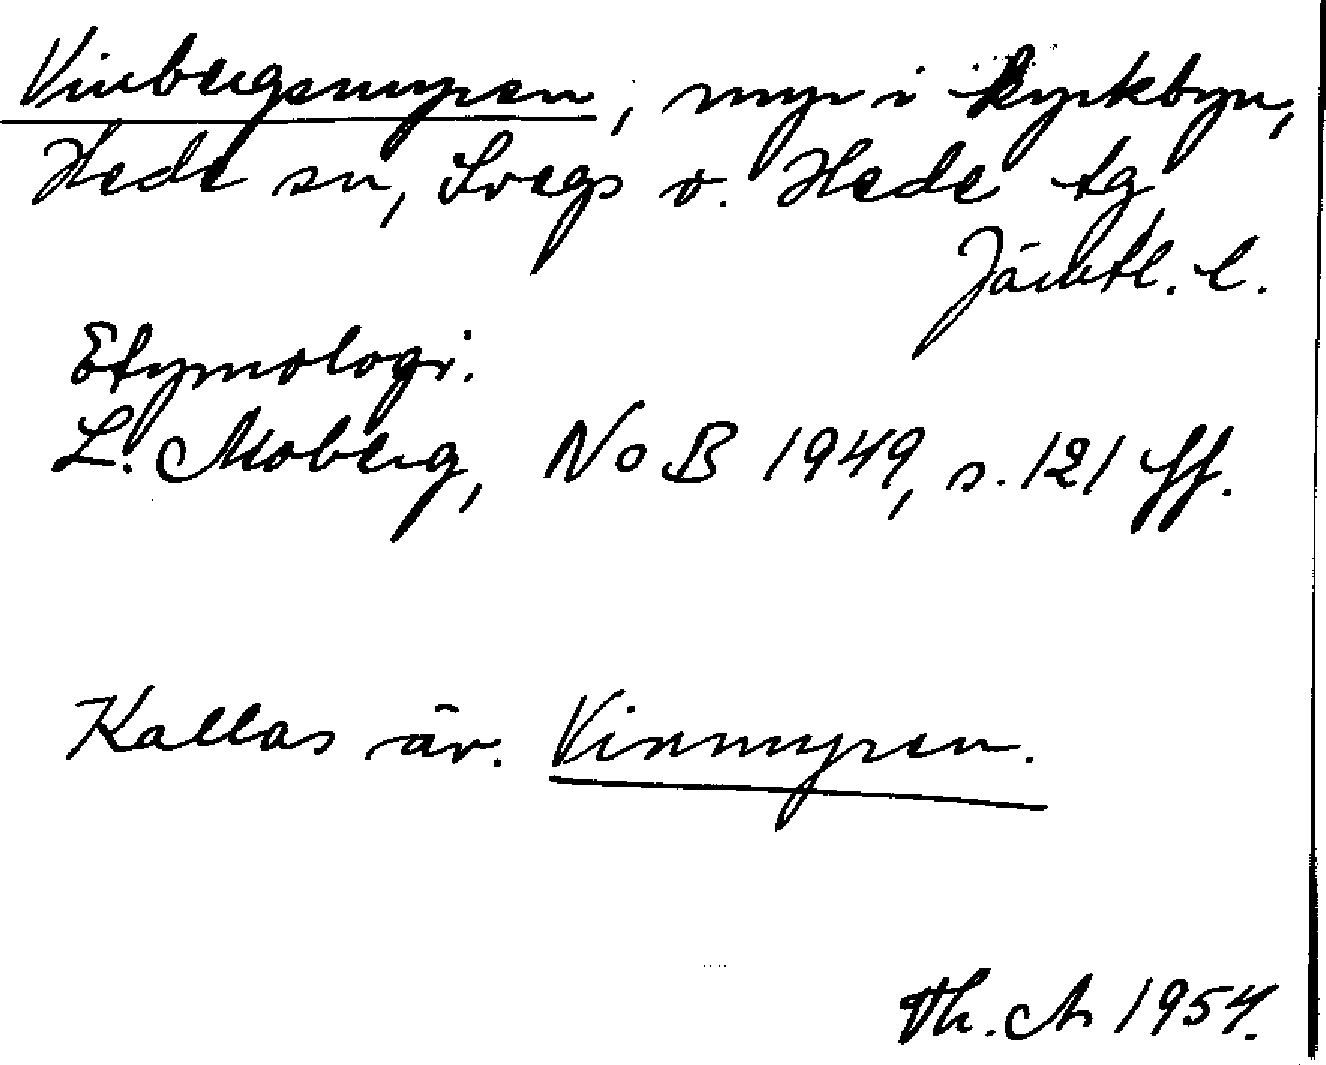 Vinbergsmyren, myr i kyrkbyn,
Hede sn, Svegs o. Hede tg
Jämtl. l.
Etymologi.
L. Moberg, NoB 1949, s. 121 ff.
Kallas äv. Vinmyren.
Th. A 1954.